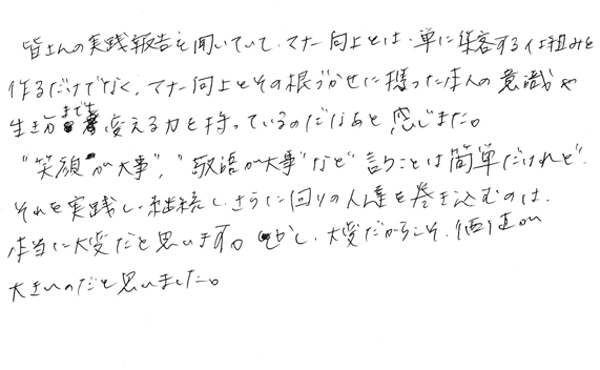 皆さんの実践報告を聞いていて、マナー向上とは、単に集客する仕組みを
作るだけでなく、マナー向上とその根づかせに携った本人の意識や
生き方までも変える力を持っているのだなあと感じました。
"笑顔が大事"、"敬語が大事"など言うことは簡単だけれど、
それを実践し、継続し、さらに回りの人達を巻き込むのは、
本当に大変だと思います。しかし、大変だからこそ、価値が
大きいのだと思いました。